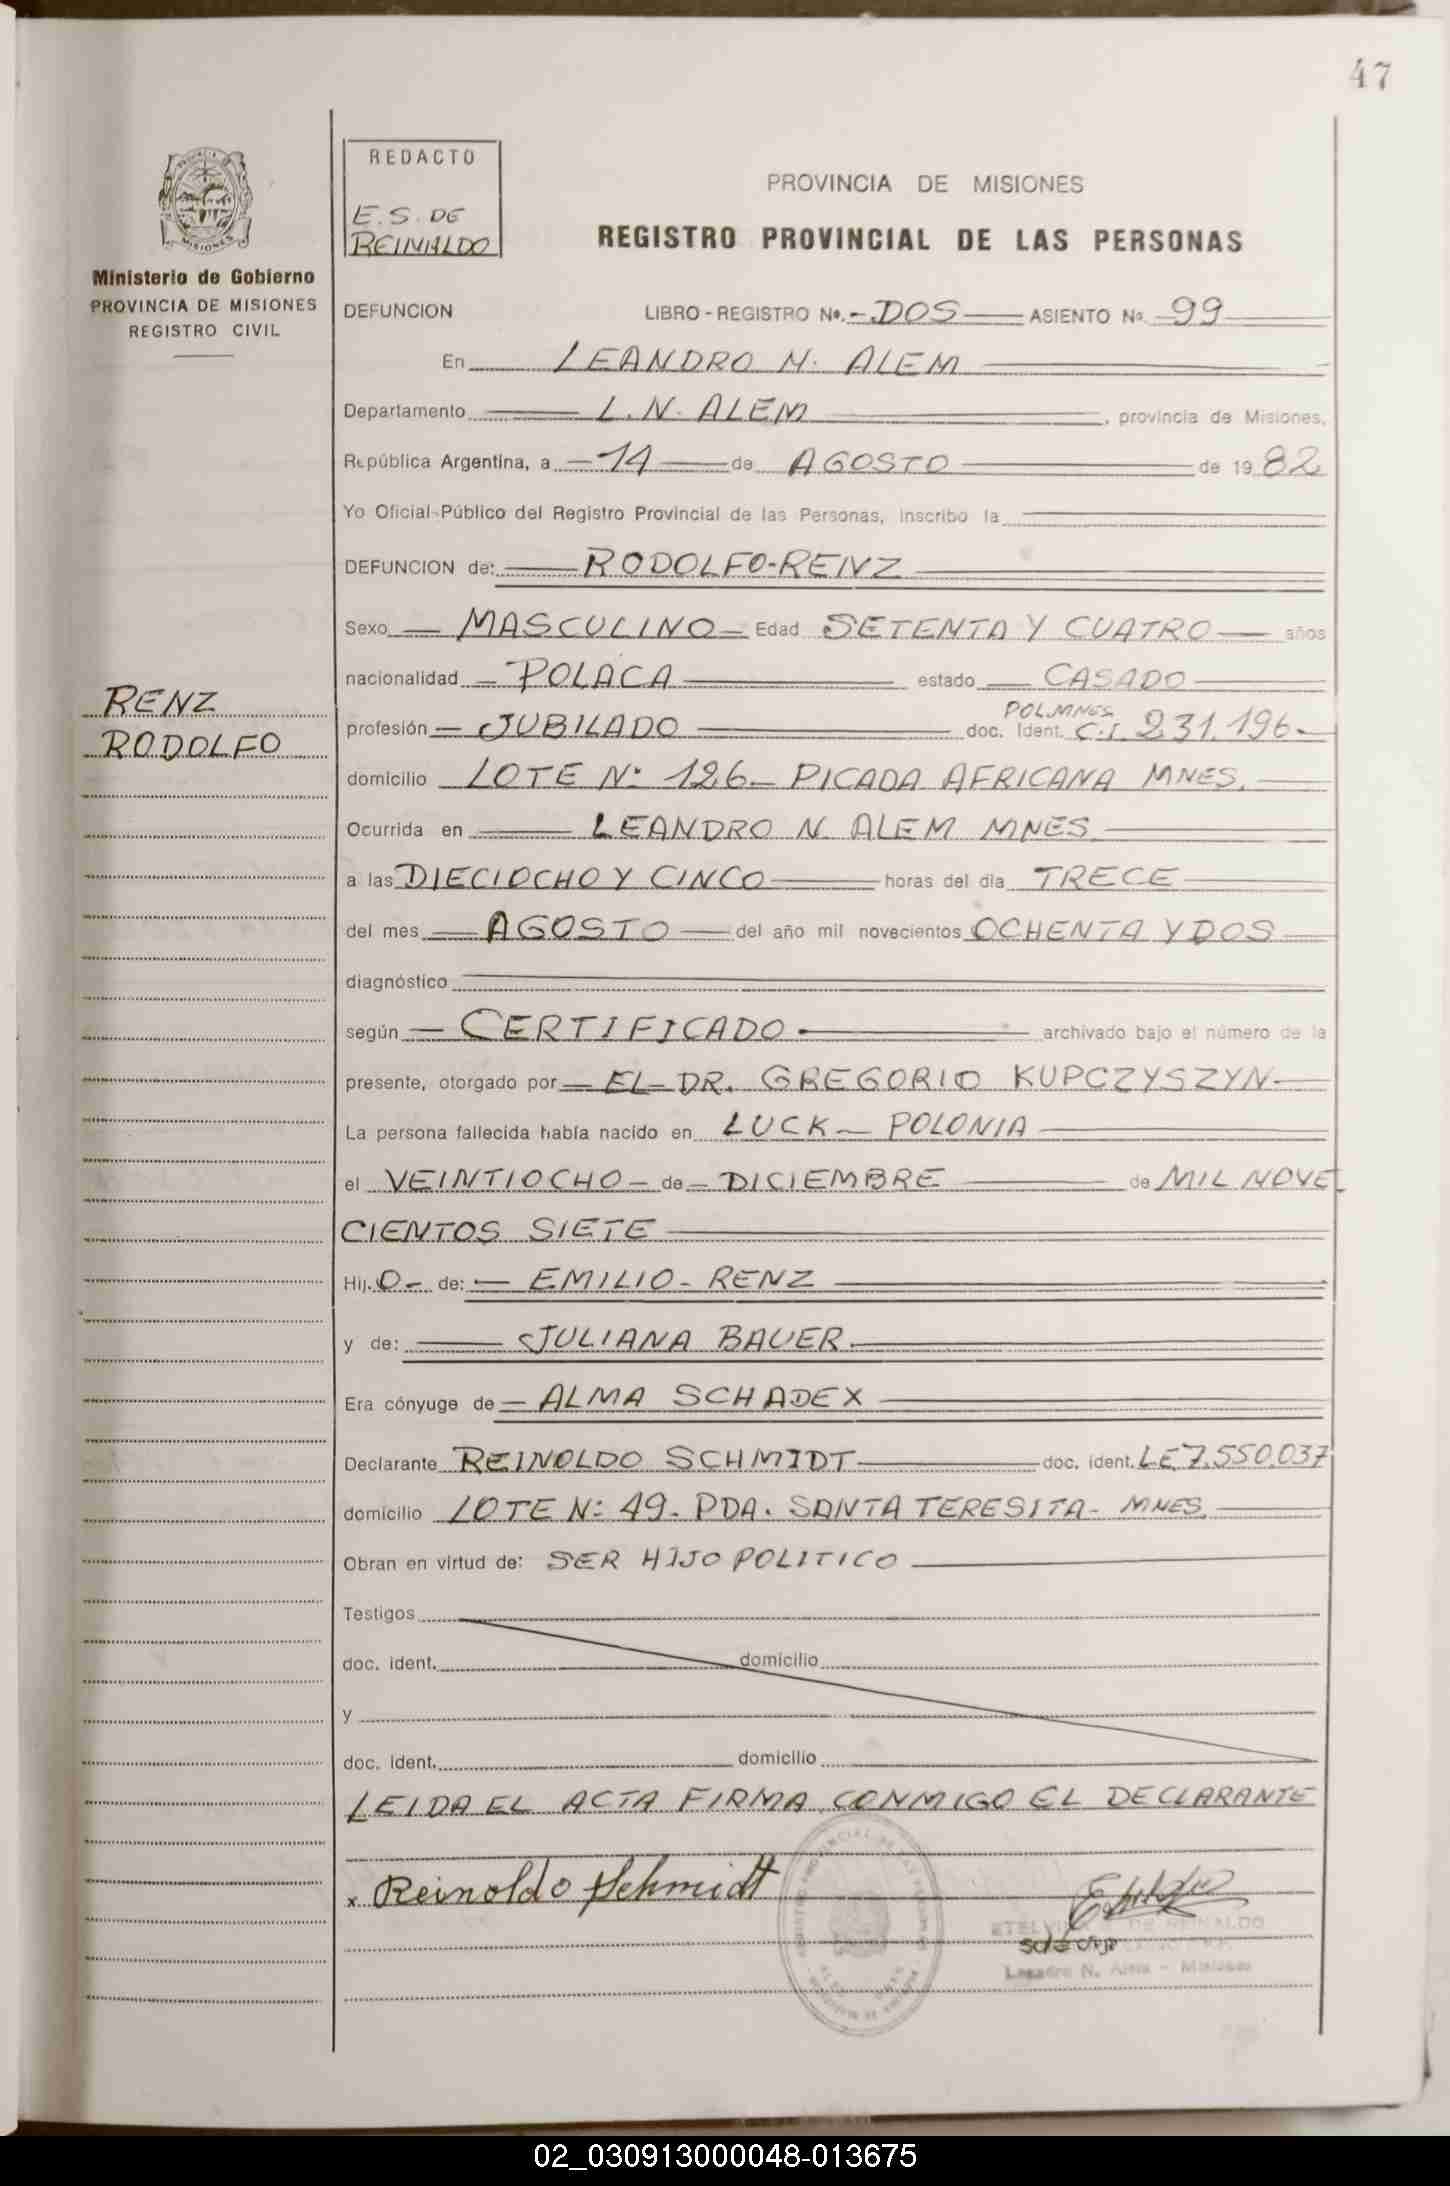 47
REDACTO
E.S. DE
REINALDO
PROVINCIA DE MISIONES
REGISTRO PROVINCIAL DE LAS PERSONAS
PROVINCIA DE
MISIONES
Ministerio de Gobierno
PROVINCIA DE MISIONES
REGISTRO CIVIL
RENZ
RODOLFO
DEFUNCION LIBRO - REGISTRO Nº. - DOS ASIENTO Nº. 99
En LEANDRO N. ALEM
Departamento L. N. ALEM, provincia de Misiones,
República Argentina, a 14 de AGOSTO de 1982
Yo Oficial Público del Registro Provincial de las Personas, inscribo la
DEFUNCION de: RODOLFO-RENZ
Sexo MASCULINO Edad SETENTA Y CUATRO años
nacionalidad POLACA estado CASADO
profesión JUBILADO doc. Ident. POL.MNES. C.I. 231.196.
domicilio LOTE N: 126 - PICADA AFRICANA MNES.
Ocurrida en LEANDRO N. ALEM MNES
a las DIECIOCHO Y CINCO horas del día TRECE
del mes AGOSTO del año mil novecientos OCHENTA Y DOS
diagnóstico
según CERTIFICADO archivado bajo el número de la
presente, otorgado por EL DR. GREGORIO KUPCZYSZYN
La persona fallecida había nacido en LUCK - POLONIA
el VEINTIOCHO de DICIEMBRE de MIL NOVE
CIENTOS SIETE
Hij.O- de: EMILIO - RENZ
y de: JULIANA BAUER
Era cónyuge de ALMA SCHADEX
Declarante REINOLDO SCHMIDT doc. ident. L.E.7.550.037
domicilio LOTE N: 49. PDA. SANTA TERESITA - MNES.
Obran en virtud de: SER HIJO POLITICO
Testigos
doc. ident. domicilio
y
doc. ident. domicilio
LEIDA EL ACTA FIRMA CONMIGO EL DECLARANTE
x Reinoldo Schmidt
DE REINALDO
Leandro N. Alem - Misiones
02_030913000048-013675